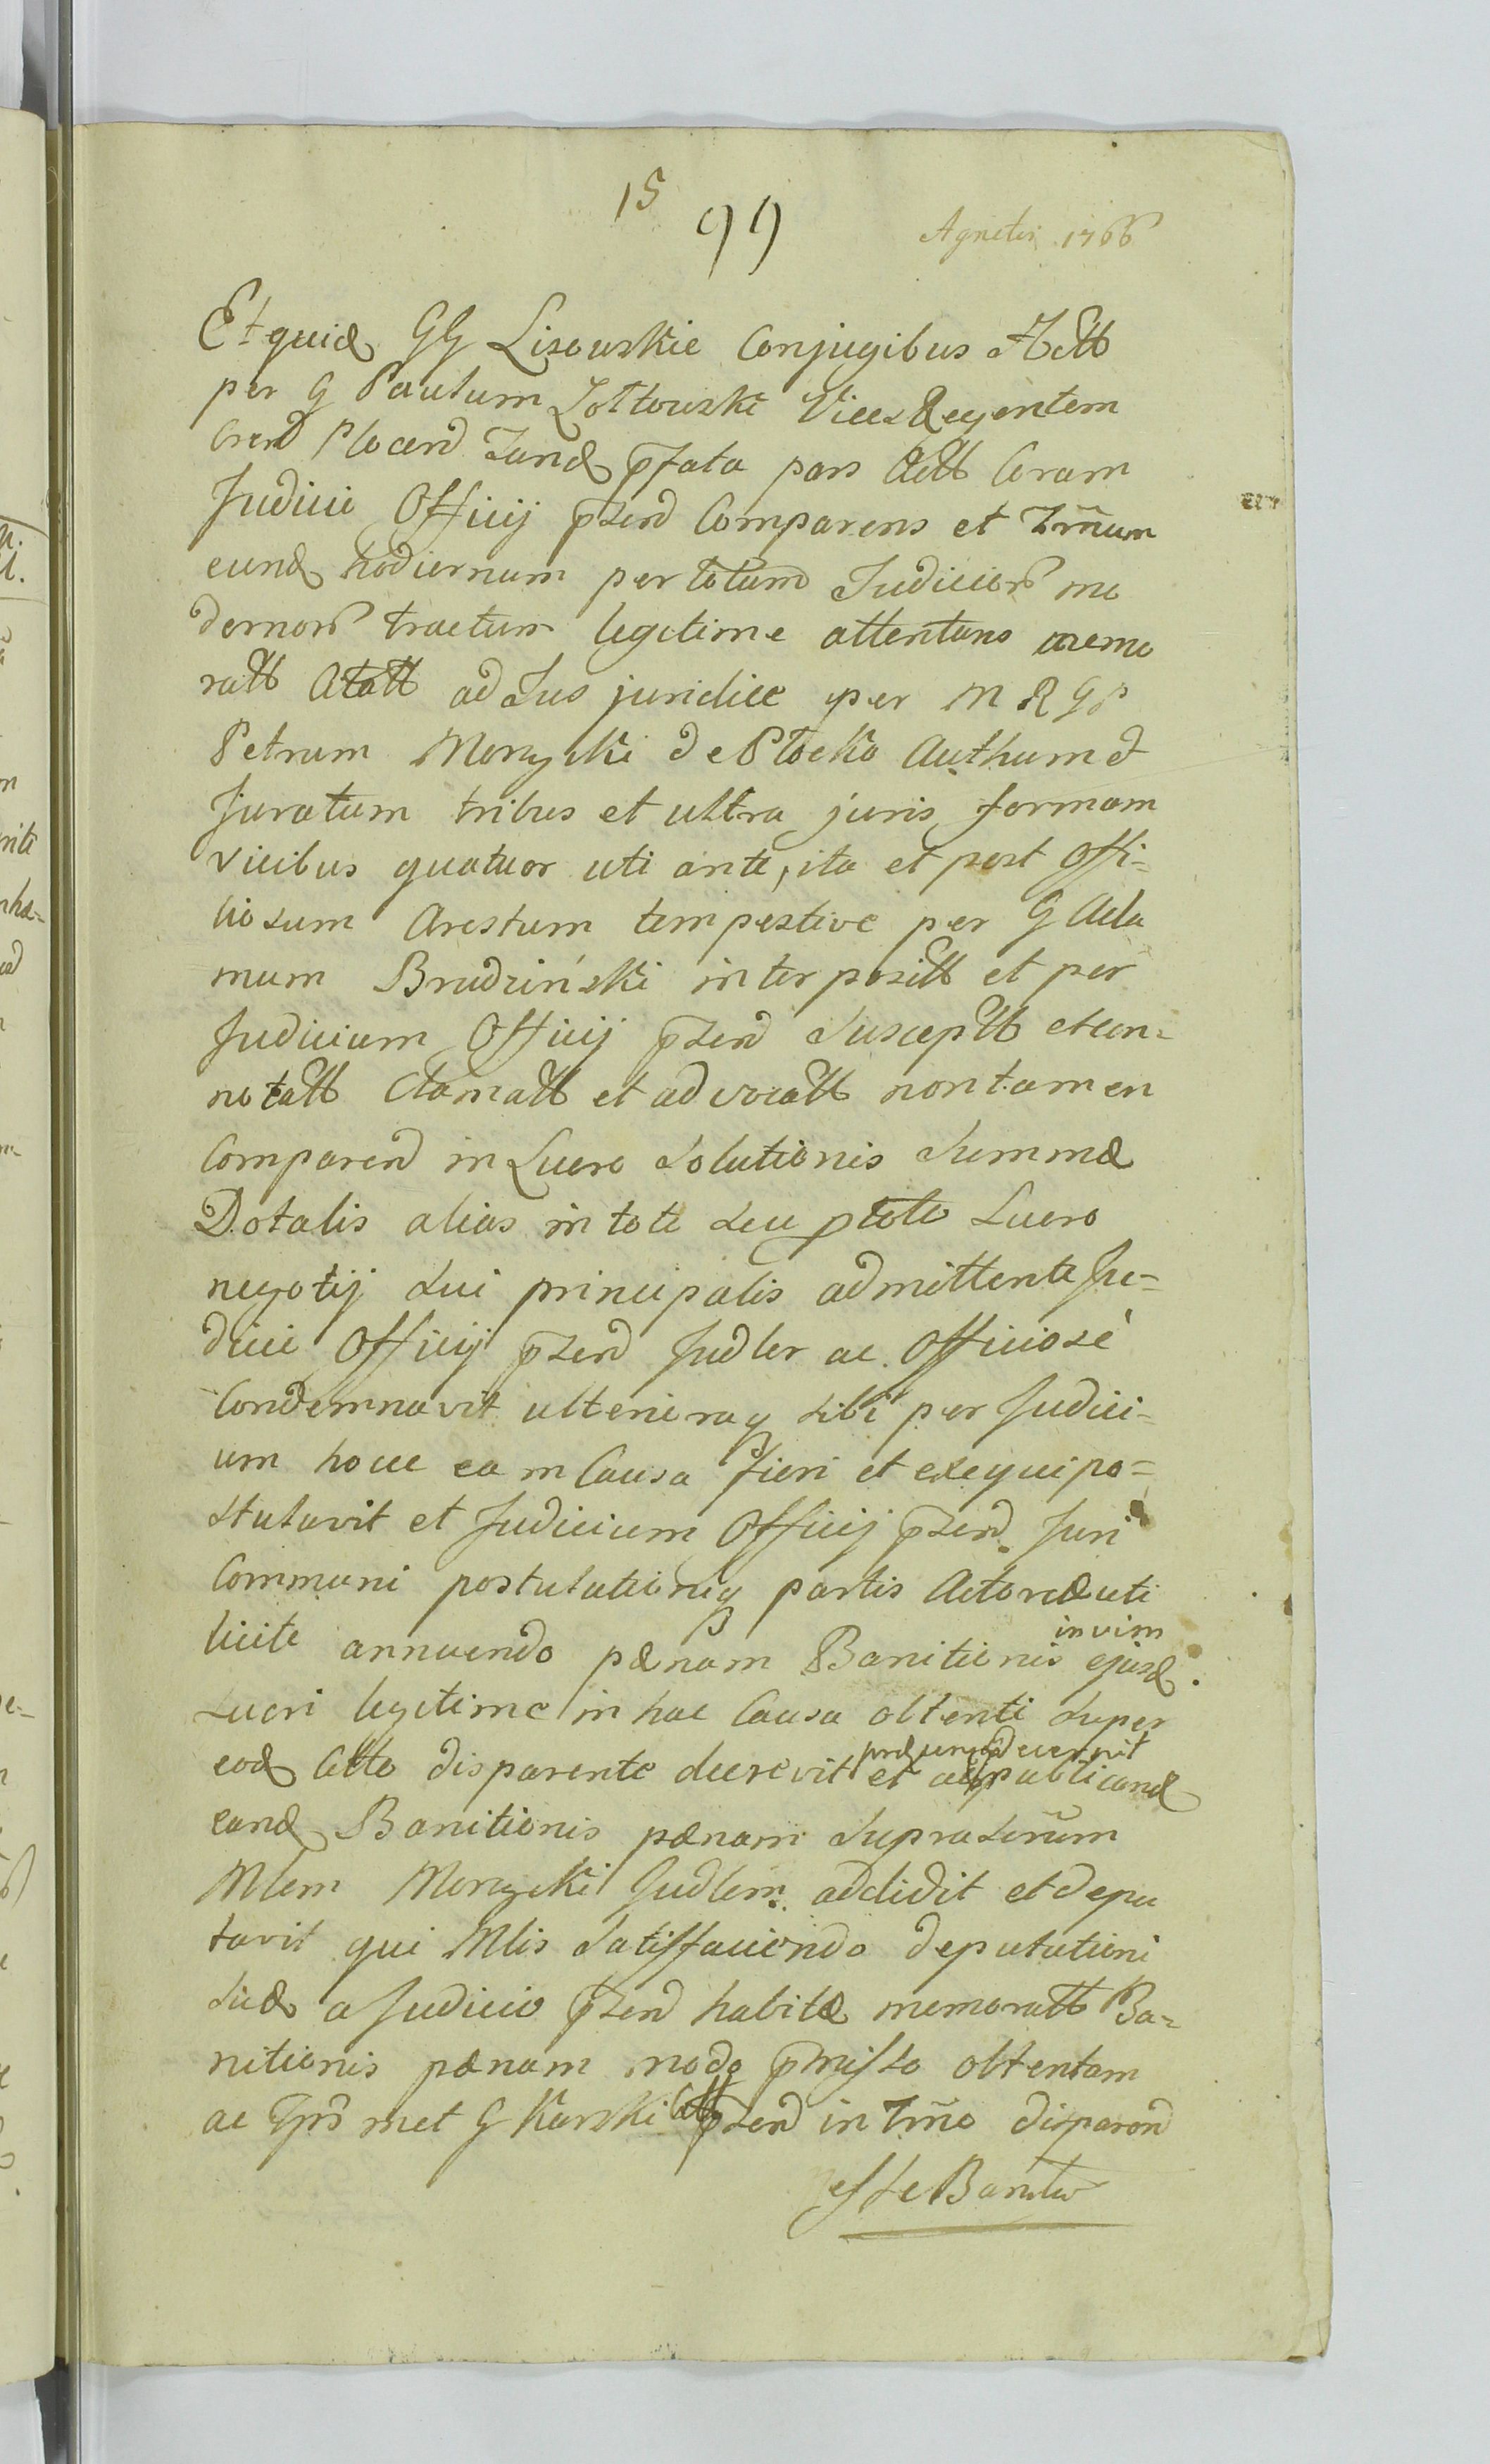 15
99
Agnetis 1766
Et quid GG Lisowskie Conjugibus Actt
per G Paulum Zołtowski Vices Regentem
Crend Plocend Tand p̄fata pars Actt Coram
Judicii Officij p̄send Comparens et Tm̄num
eund hodiernum per totum Judicior mo
dernor tractum legitime attentans memo
ratt Citatt ad Jus juridice per M R G P
Petrum Monycki de Płocko Authum et
Juratum tribus et ultra juris formam
vicibus quatuor uti ante, ita et post Offi=
ciosum Arestum tempestive per G Ada
mum Brudziński interpositt et per
Judicium Officij p̄send Susceptt et con=
notatt Clamatt et advocatt non tamen
Comparend in Lucro Solutionis Summæ
Dotalis alias in toti seu ptoto Lucro
negotij sui principalis admittente Ju=
dicii Officij p̄send Judler ac Officiosè
Condemnavit ulterioraq sibi per Judici=
um hocce ea in Causa fieri et exequi po=
stulavit et Judicium Officij p̄send Juri
Communi postulationiq partis Actoreæ uti
licite annuendo pænam Banitionis in vim ejusd
Lucri legitime in hac Causa obtenti super
eod Citto disparente decrevit et ad publicand
eand Banitionis pænam supra Term̄
Mlem Monycki Judlem addidit et depu
tavit qui Mlis Satisfaciendo deputationi
suæ a Judicio p̄send habitæ memoratt Ba=
nitionis pænam modo p̄misso obtentam
ac Gp̄d met G Karski Citt p̄send in Tm̄no disparend
esse Banitu